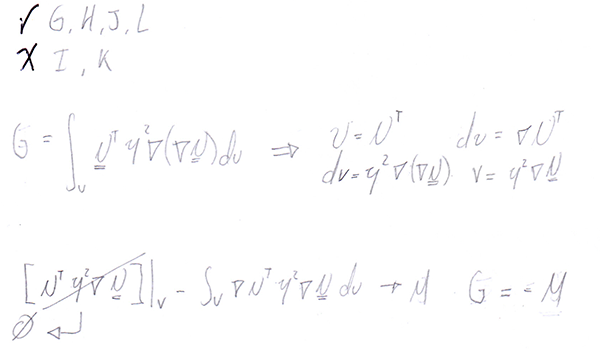 ✓ G, H, J, L
X I, K
G = ∫_V N^T η² ∇(∇N) dv ⇒ U = N^T du = ∇N^T
dv = η² ∇(∇N) v = η² ∇N
[N^T η² ∇N]|_V - ∫_V ∇N^T η² ∇N dv → M G = -M
∅ ↵